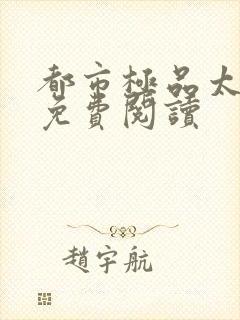 都市極品太
免費閱讀
趙宇航